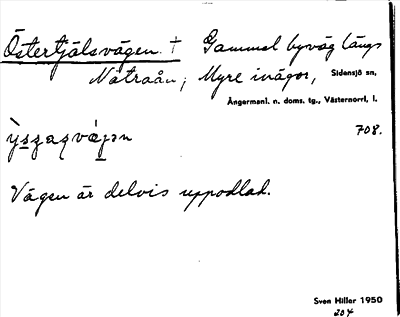 Östertjälsvägen. † Gammel byväg längs
Nätraån; Myre inägor, Sidensjö sn,
Ångermanl. n. doms. tg., Västernorrl. l.
708.
Vägen är delvis uppodlad.
Sven Hiller 1950
204